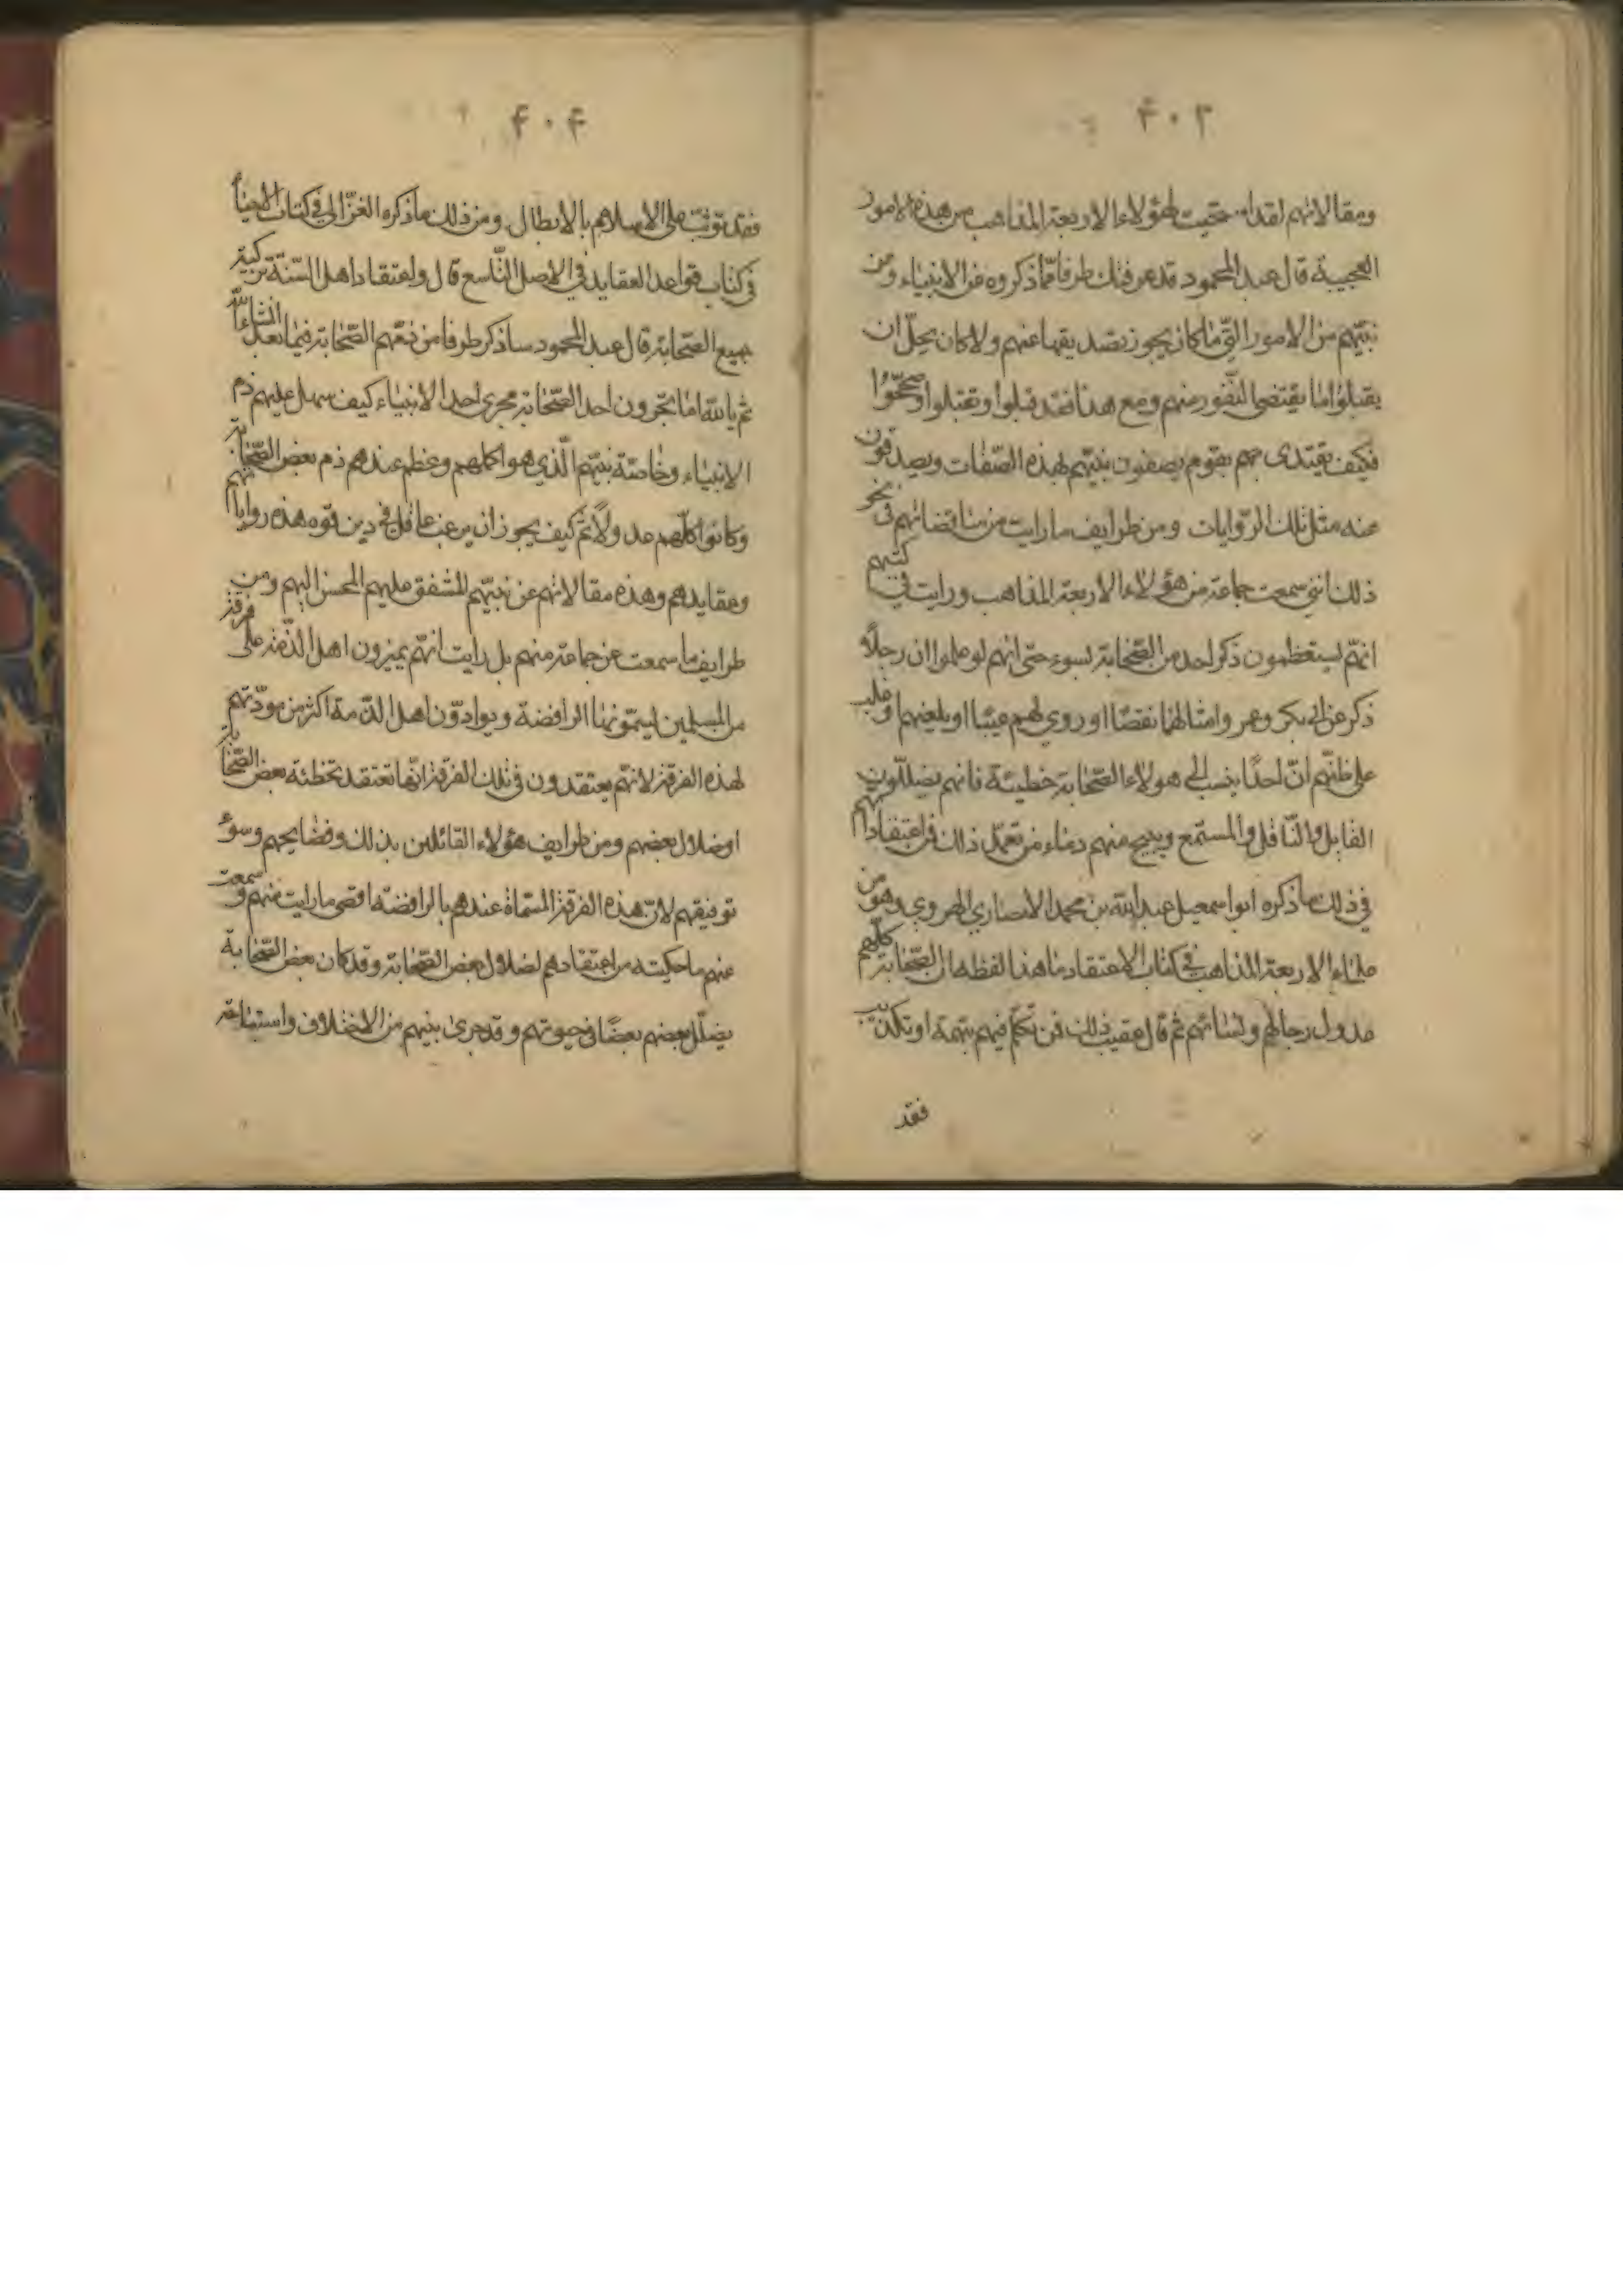 ۴۰۳
ومقالاتهم لقد استحييت لهؤلاء الاربعة المذاهب من هذه الامور
العجيبة قال عبد المحمود قد عرفتك طرفا مما ذكروه عن الانبياء وعن
نبيهم من الامور التي ما كان يجوز تصديقها عنهم ولا كان يحل ان
يقبلوا ما يقتضي النفور منهم ومع هذا فقد قبلوا وتقبلوا وصححوا
فكيف يقتدى بهم بقوم يصفون نبيهم لهذه الصفات ويصدقون
عنه مثل تلك الروايات ومن طرايف ما رايت من مناقضاتهم في نحو
ذلك انني سمعت جماعة من هؤلاء الاربعة المذاهب ورايت في كتبهم
انهم يستعظمون ذكر احد من الصحابة بسوء حتى انهم لو علموا ان رجلا
ذكر عن ابي بكر وعمر وامثالهما نقصا او روي لهم عيبا او يلعنهم او غلب
على ظنهم ان احدا ينسب الى هؤلاء الصحابة خطيئة فانهم يضللون
القايل والناقل والمستمع ويبيح منهم دماء من تعمل ذلك فمن اعتقاداتهم
في ذلك ما ذكره ابو اسمعيل عبد الله بن محمد الانصاري الهروي وهو من
علماء الاربعة المذاهب في كتاب الاعتقاد ما هذا لفظه ان الصحابة كلهم
عدول رجالهم ونسائهم ثم قال عقيب ذلك فمن تكلم فيهم بتهمة او تكذيب
فقد
۴۰۴
فقد توثب على الاسلام بالابطال ومن ذلك ما ذكره الغزالي في كتاب الاحياء
في كتاب قواعد العقايد في الاصل التاسع قال واعتقاد اهل السنة تزكية
جميع الصحابة قال عبد المحمود ساذكر طرفا من ذمهم الصحابة فيما بعد انشاء الله
ثم بالله اما يجرون احد الصحابة مجرى احد الانبياء كيف سهل عليهم ذم
الانبياء وخاصة نبيهم الذي هو اكملهم وعظم عندهم ذم بعض الصحابة
وكانوا كلهم عدولا ثم كيف يجوز ان يرغب عاقل في دين قوم هذه رواياتهم
وعقايدهم وهذه مقالاتهم عن نبيهم المشفق عليهم المحسن اليهم ومن
طرايف ما سمعت عن جماعة منهم بل رايت انهم يميزون اهل الذمة على فرقة
من المسلمين يسمونها الرافضة ويوادون اهل الذمة اكثر من مودتهم
لهذه الفرقة لانهم يعتقدون في تلك الفرقة انها تعتقد تخطئة بعض الصحابة
او ضلال بعضهم ومن طرايف هؤلاء القائلين بذلك وفضايحهم وسوء
توفيقهم لان هذه الفرقة المسماة عندهم بالرافضة اقصى ما رايت منهم وسمعت
عنهم ما حكيته من اعتقادهم لضلال بعض الصحابة وقد كان بعض الصحابة
يضلل بعضهم بعضا في حيوتهم وقد جرى بينهم من الاختلاف واستباحة